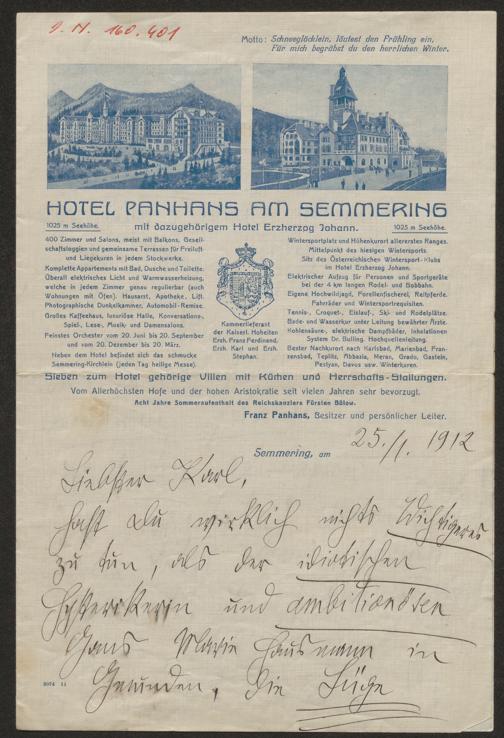 I. N. 160.401
Motto: Schneeglöcklein, läutest den Frühling ein,
Für mich begräbst du den herrlichen Winter.
HOTEL PANHANS AM SEMMERING
1025 m Seehöhe.
mit dazugehörigem Hotel Erzherzog Johann.
1025 m Seehöhe.
400 Zimmer und Salons, meist mit Balkons, Gesell-
schaftsloggien und gemeinsame Terrassen für Freiluft-
und Liegekuren in jedem Stockwerke.
Komplette Appartements mit Bad, Dusche und Toilette.
Überall elektrisches Licht und Warmwasserheizung,
welche in jedem Zimmer genau regulierbar (auch
Wohnungen mit Öfen). Hausarzt, Apotheke, Lift.
Photographische Dunkelkammer, Automobil-Remise.
Großes Kaffeehaus, luxuriöse Halle, Konversations-,
Spiel-, Lese-, Musik- und Damensalons.
Feinstes Orchester vom 20. Juni bis 20. September
und vom 20. Dezember bis 20. März.
Neben dem Hotel befindet sich das schmucke
Semmering-Kirchlein (jeden Tag heilige Messe).
Kammerlieferant
der Kaiserl. Hoheiten
Erzh. Franz Ferdinand,
Erzh. Karl und Erzh.
Stephan.
Wintersportplatz und Höhenkurort allerersten Ranges.
Mittelpunkt des hiesigen Wintersports.
Sitz des Österreichischen Wintersport-Klubs
im Hotel Erzherzog Johann.
Elektrischer Aufzug für Personen und Sportgeräte
bei der 4 km langen Rodel- und Bobbahn.
Eigene Hochwildjagd, Forellenfischerei, Reitpferde,
Fahrräder und Wintersportrequisiten.
Tennis-, Croquet-, Eislauf-, Ski- und Rodelplätze.
Bade- und Wasserkur unter Leitung bewährter Ärzte.
Kohlensäure-, elektrische Dampfbäder, Inhalationen
System Dr. Bulling. Hochquellenleitung.
Bester Nachkurort nach Karlsbad, Marienbad, Fran-
zensbad, Teplitz, Abbazia, Meran, Grado, Gastein,
Pestyan, Davos usw. Winterkuren.
Sieben zum Hotel gehörige Villen mit Küchen und Herrschafts-Stallungen.
Vom Allerhöchsten Hofe und der hohen Aristokratie seit vielen Jahren sehr bevorzugt.
Acht Jahre Sommeraufenthalt des Reichskanzlers Fürsten Bülow.
Franz Panhans, Besitzer und persönlicher Leiter.
Semmering, am 25./1. 1912
Liebster Karl,
hast du wirklich nichts Wichtigeres
zu tun, als der idiotischen
Hysterikerin und ambitiösen
Gans Marie Hausmann in
Gmunden, die Lüge